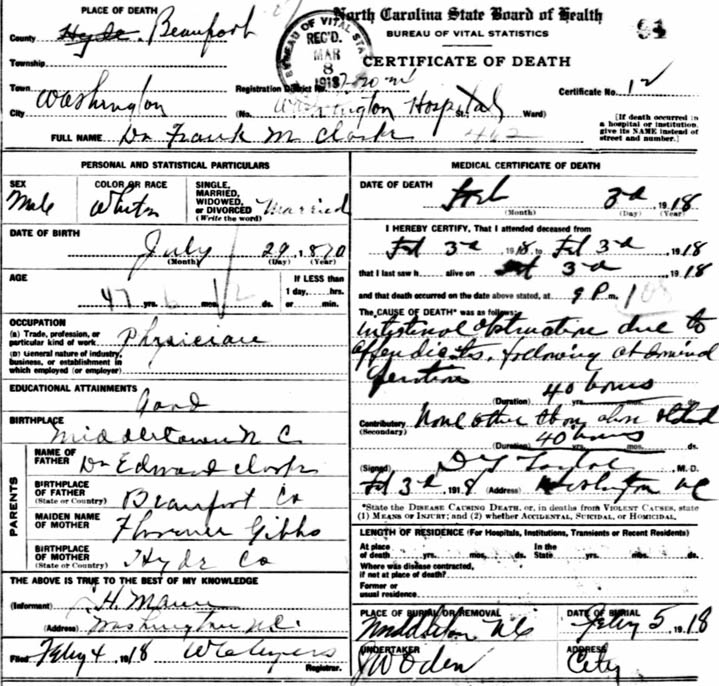 PLACE OF DEATH
North Carolina State Board of Health
BUREAU OF VITAL STATISTICS
CERTIFICATE OF DEATH
91
BUREAU OF VITAL STA
REC'D.
MAR
8
1918
County Hyde Beaufort
Township
Registration District No. 720
Certificate No. 12
Town Washington
City
(No. Washington Hospital St. Ward)
[If death occurred in a hospital or institution, give its NAME instead of street and number.]
FULL NAME Dr Frank M Clark
PERSONAL AND STATISTICAL PARTICULARS
SEX
Male
COLOR OR RACE
White
SINGLE, MARRIED, WIDOWED, or DIVORCED
(Write the word)
Married
DATE OF BIRTH
July 29, 1870
(Month) (Day) (Year)
AGE
47 yrs. 6 mos. ds.
If LESS than
1 day, hrs.
or min.
OCCUPATION
(a) Trade, profession, or particular kind of work
Physician
(b) General nature of industry, business, or establishment in which employed (or employer)
EDUCATIONAL ATTAINMENTS
Good
BIRTHPLACE
Middletown N C
PARENTS
NAME OF FATHER
Dr Edward Clark
BIRTHPLACE OF FATHER
(State or Country)
Beaufort Co
MAIDEN NAME OF MOTHER
Florence Gibbs
BIRTHPLACE OF MOTHER
(State or Country)
Hyde Co
THE ABOVE IS TRUE TO THE BEST OF MY KNOWLEDGE
(Informant) H.
(Address) Washington N.C.
Filed Feby 4, 1918
Registrar.
MEDICAL CERTIFICATE OF DEATH
DATE OF DEATH
Feb 3d 1918
(Month) (Day) (Year)
I HEREBY CERTIFY, That I attended deceased from
Feb 3d 1918, to Feb 3d 1918
that I last saw h alive on Feb 3d 1918
and that death occurred on the date above stated, at 9 P m.
The CAUSE OF DEATH* was as follows:
Intestinal obstruction due to
appendicitis, following abdominal
operation
40 hours
(Duration) yrs. mos. ds.
Contributory None other than above stated
(Secondary)
40 hours
(Duration) yrs. mos. ds.
(Signed) D T Tayloe M. D.
Feb 3d 1918 (Address) Washington NC
*State the DISEASE CAUSING DEATH, or, in deaths from VIOLENT CAUSES, state
(1) MEANS OF INJURY; and (2) whether ACCIDENTAL, SUICIDAL, or HOMICIDAL.
LENGTH OF RESIDENCE (For Hospitals, Institutions, Transients or Recent Residents)
At place of death yrs. mos. ds.
In the State yrs. mos. ds.
Where was disease contracted, if not at place of death?
Former or usual residence
PLACE OF BURIAL OR REMOVAL
Middleton NC
DATE OF BURIAL
Feby 5 1918
UNDERTAKER
JW Oden
ADDRESS
City